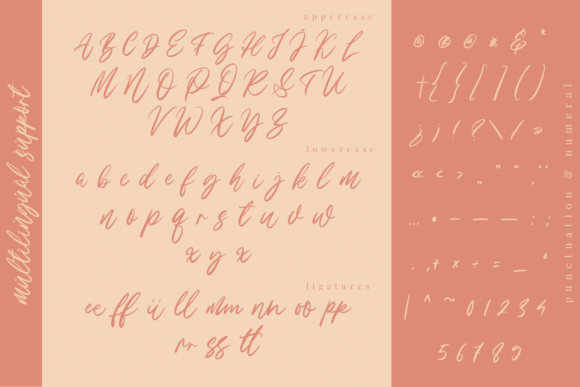 multilingual support
oppercase
A B C D E F G H I J K L
M N O P Q R S T U
V W X Y Z
lowercase
a b c d e f g h i j k l m
n o p q r s t u v w
x y z
ligatures
ee ff ii ll mm nn oo pp
rr ss tt
punctuation & numeral
@ &
† { } [ ] ( )
¡ ! ? \ / »
« ‹ ›
… • – — — : ;
. , + × ÷ = _ °
| ^ ~ 0 1 2 3 4
5 6 7 8 9